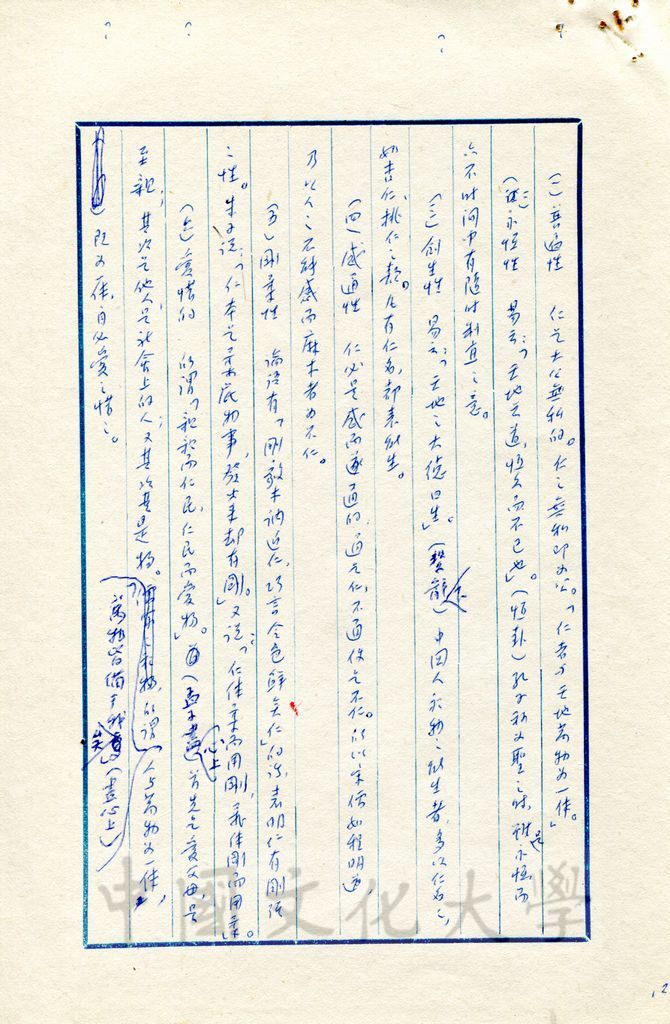 (一)普遍性 仁是大公無私的。仁之無私即為公。「仁者與天地萬物為一体。」
(二)永恒性 易云:「天地之道,恒久而不已也」。(恒卦)孔子稱為聖之時,雖是永恒,而
亦不時間中有隨時制宜之意。
(三)創生性 易云:「天地之大德曰生」。(繫辭下)中国人於物之能生者,多以仁名之,
如杏仁、桃仁之類。凡有仁者,都未能生。
(四)感通性 仁必是感而遂通的,通是仁,不通便是不仁。所以宋儒如程明道,
乃以人之不能感而麻木者為不仁。
(五)剛柔性 論語有「剛毅木訥近仁,巧言令色鮮矣仁」的話,表明仁有剛强
之性。朱子說:「仁本是柔底物事,發出来却有剛。」又說:「仁体柔而用剛,義体剛而用柔」。
(六)愛惜的 所謂「親親而仁民,仁民而愛物。」(孟子盡心上)首先是愛父母,是
至親;其次是他人,是社會上的人;又其次是物。所謂「人与萬物為一体,
萬物皆備于我矣」(盡心上)
既為一体,自必愛之惜之。
中國文化大學
12